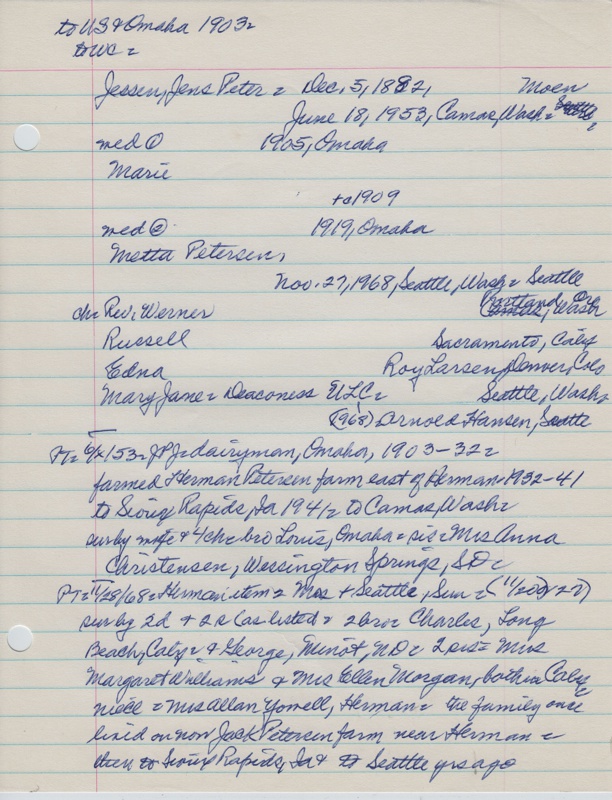 to US & Omaha 1903=
to WC =
Jessen, Jens Peter = Dec. 5, 1882, Moen
June 18, 1953, Camas, Wash = Seattle
med ① 1905, Omaha
Marie
+ca 1909
med ② 1919, Omaha
Metta Petersen,
Nov. 27, 1968, Seattle, Wash = Seattle
Portland, Or
ch = Rev. Werner Camas, Wash
Russell Sacramento, Caly
Edna Roy Larsen, Denver, Colo
Mary Jane = Deaconess ULC = Seattle, Wash,
(1968) Arnold Hansen, Seattle
PT = 53 = JPJ = dairyman, Omaha, 1903-32 =
farmed Herman Petersen farm east of Herman 1932-41
to Sioux Rapids, Ia 1941 = to Camas, Wash =
sur by wife & 4 ch = bro Louis, Omaha = sis = Mrs Anna
Christensen, Wessington Springs, SD =
PT = 11/28/68 = Herman item = Mrs + Seattle, Sun = (11/
sur by 2d & 2s (as listed = 2 bro = Charles, Long
Beach, Caly = & George, Minot, ND = 2 sis = Mrs
Margaret Williams & Mrs Ellen Morgan, both in Caly
niece = Mrs Allan Yowell, Herman = the family once
lived on now Jack Petersen farm near Herman =
then to Sioux Rapids, Ia & to Seattle yrs ago